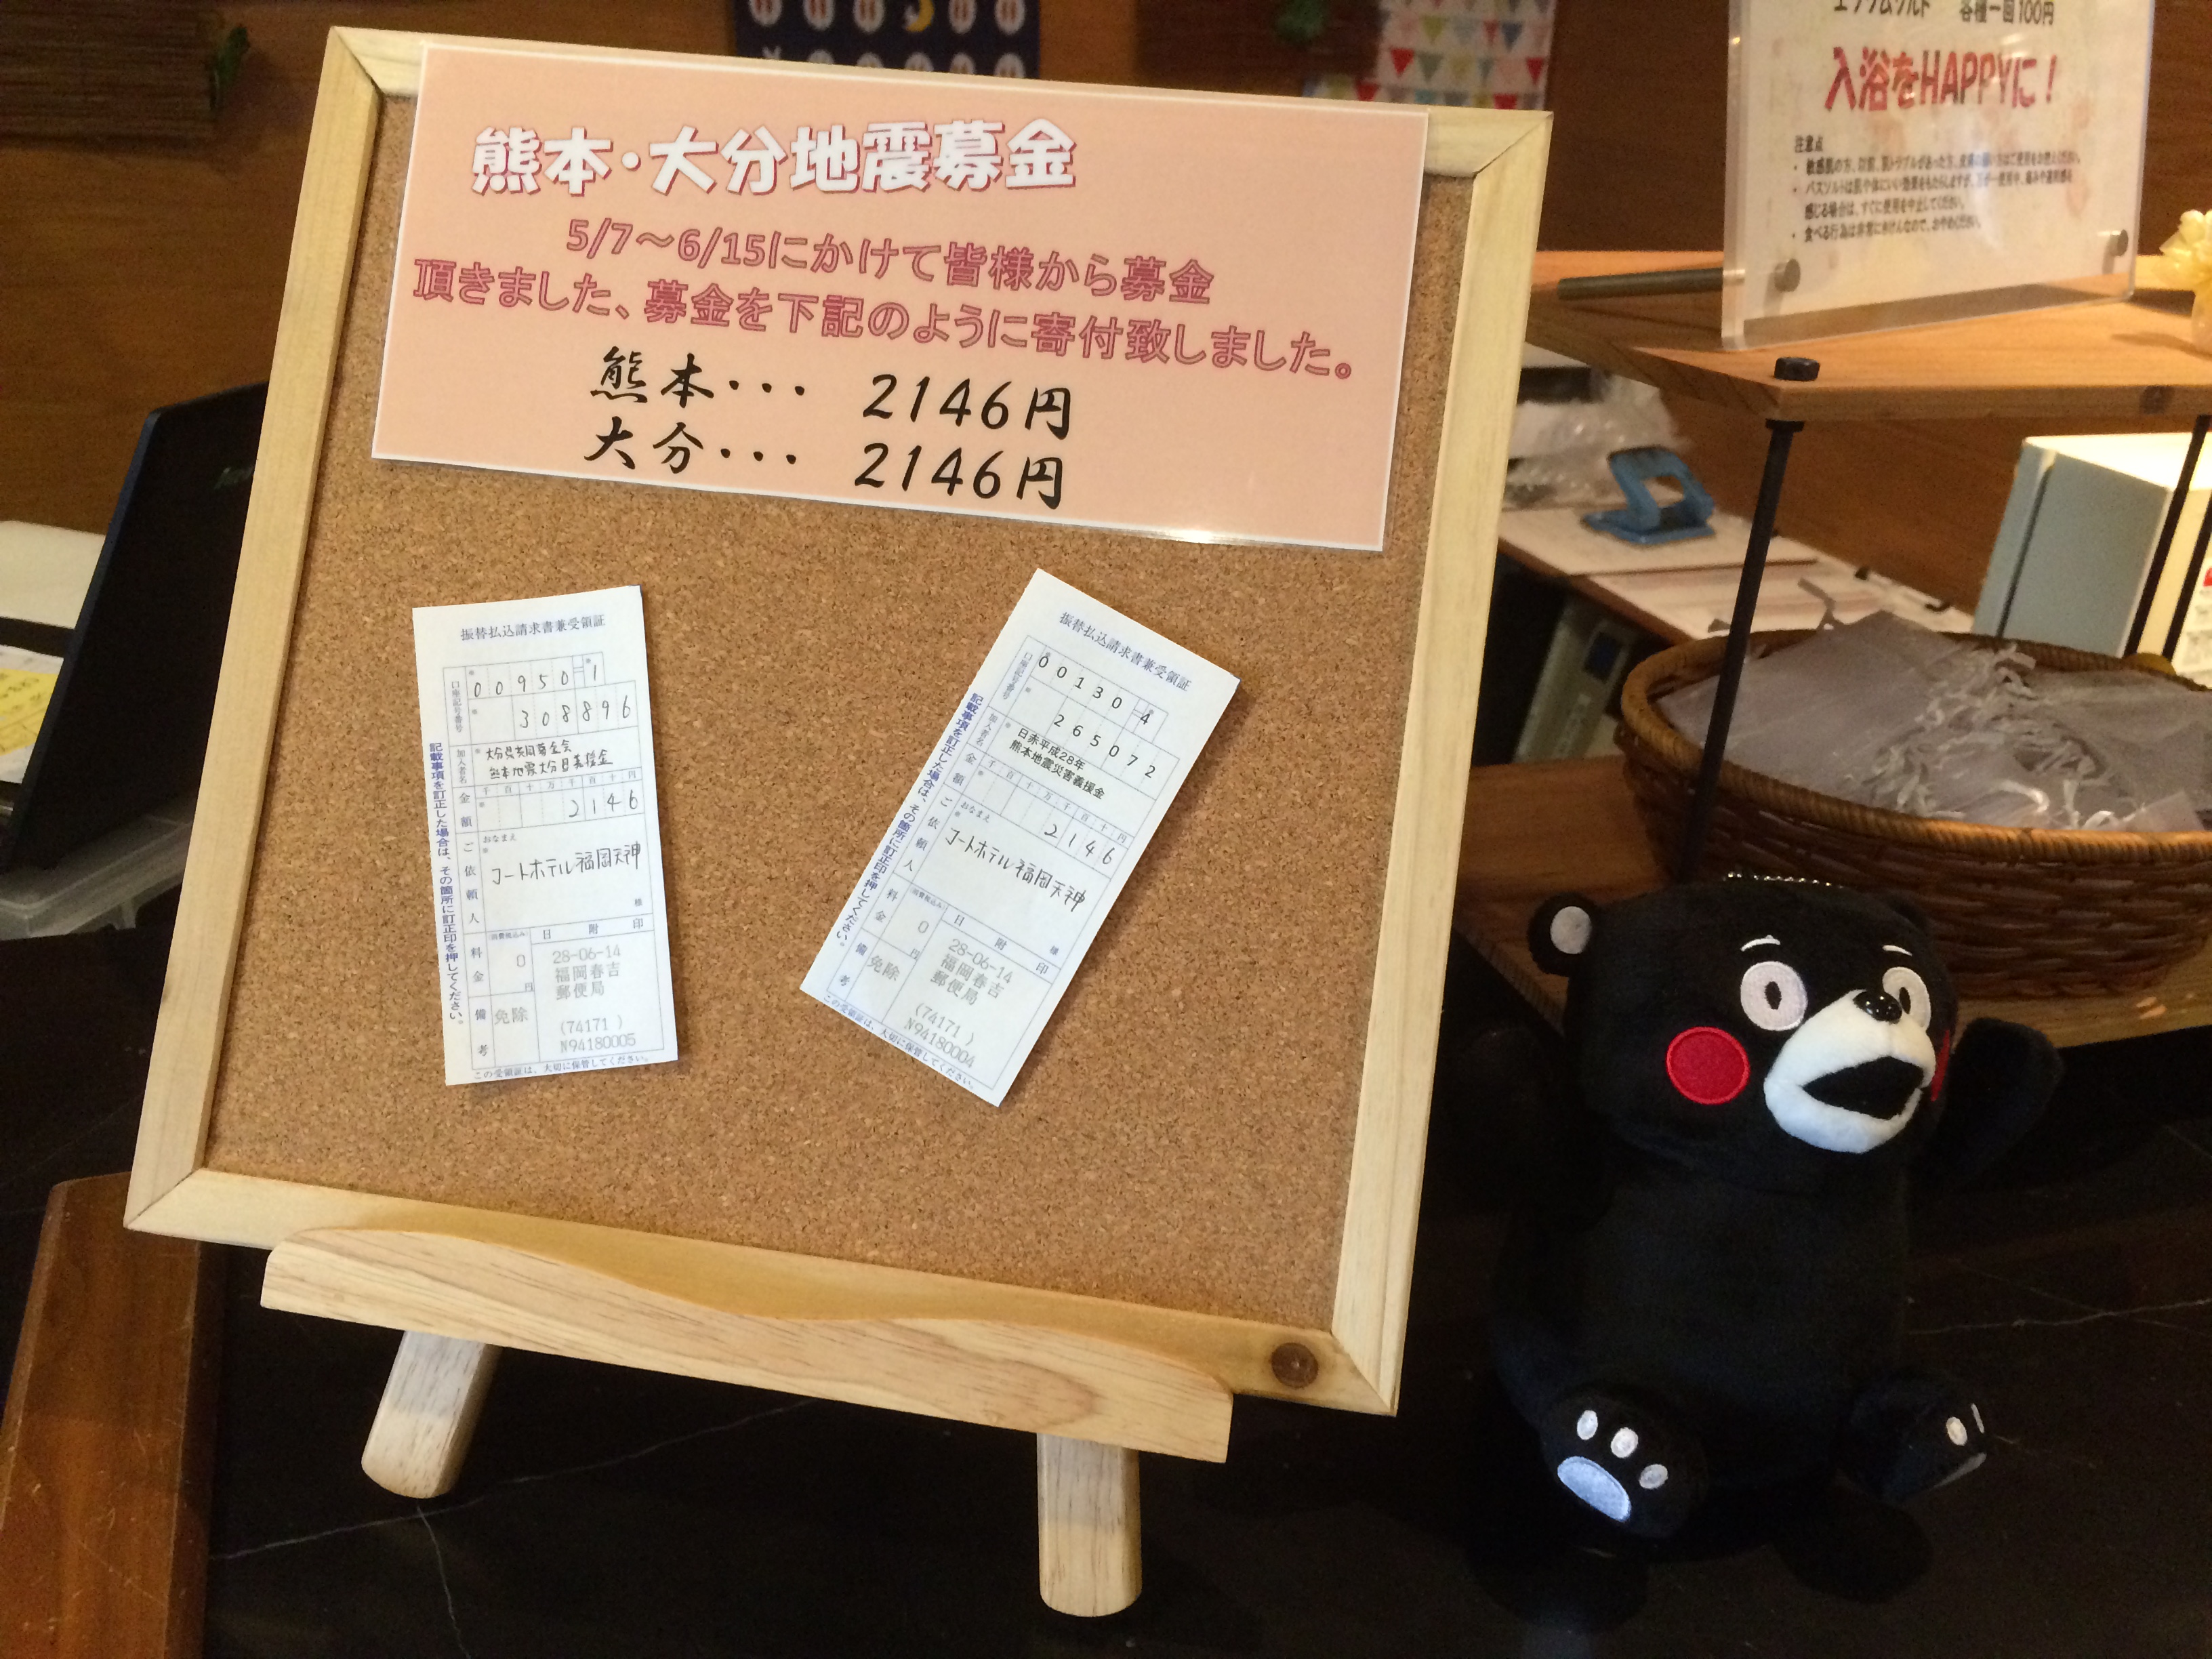 熊本・大分地震募金
5/7～6/15にかけて皆様から募金
頂きました、募金を下記のように寄付致しました。
熊本・・・ 2146円
大分・・・ 2146円
振替払込請求書兼受領証
口座記号番号
00950-1
308896
加入者名
大分県共同募金会
熊本地震大分県義援金
金額
千百十万千百十円
2146
ご依頼人
おなまえ
コートホテル福岡天神
様
料金
消費税込み
0
円
日附印
28-06-14
福岡春吉
郵便局
(74171 )
N94180005
備考
免除
記載事項を訂正した場合は、その箇所に訂正印を押してください。
この受領証は、大切に保管してください。
振替払込請求書兼受領証
口座記号番号
00130-4
265072
加入者名
日赤平成28年
熊本地震災害義援金
金額
千百十万千百十円
2146
ご依頼人
おなまえ
コートホテル福岡天神
様
料金
消費税込み
0
円
日附印
28-06-14
福岡春吉
郵便局
(74171 )
N94180004
備考
免除
記載事項を訂正した場合は、その箇所に訂正印を押してください。
この受領証は、大切に保管してください。
エプソムソルト 各種一回100円
入浴をHAPPYに！
注意点
感じる場合は、すぐに使用を中止してください。